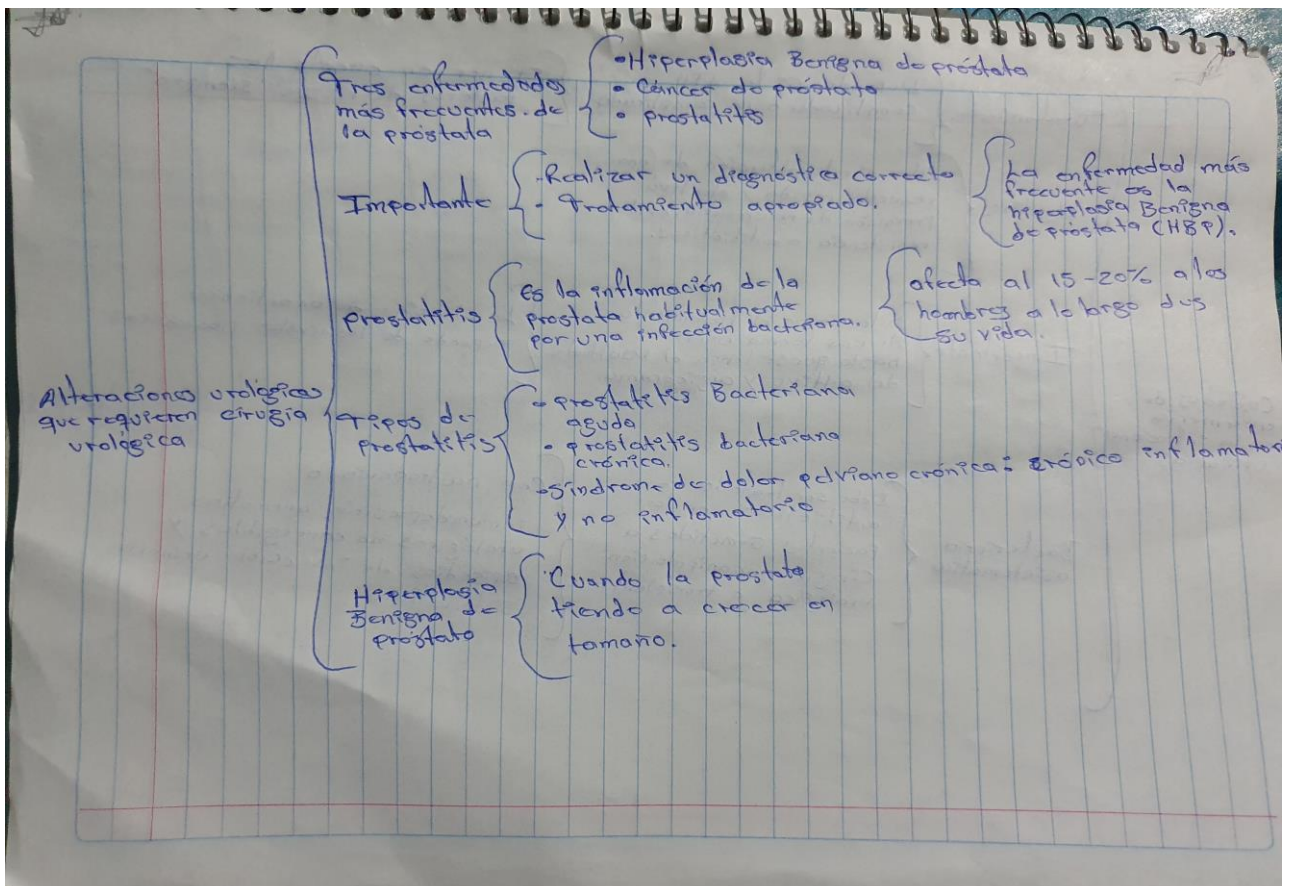 Alteraciones urológicas
que requieren cirugía
urológica
Tres enfermedades
más frecuentes. de
la próstata
•Hiperplasia Benigna de próstata
• Cáncer de próstata
• prostatitis
Importante
-Realizar un diagnóstico correcto
- Tratamiento apropiado.
La enfermedad más
frecuente es la
hiperplasia Benigna
de próstata (HBP).
prostatitis
Es la inflamación de la
prostata habitualmente
por una infección bacteriana.
afecta al 15-20% a los
hombres a lo largo dus
su vida.
Tipos de
prostatitis
• prostatitis Bacteriana
aguda
• prostatitis bacteriana
crónica.
•síndrome de dolor pelviano crónica: inflamatori
y no inflamatorio
Hiperplasia
Benigna de
próstata
Cuando la prostata
tiende a crecer en
tamaño.